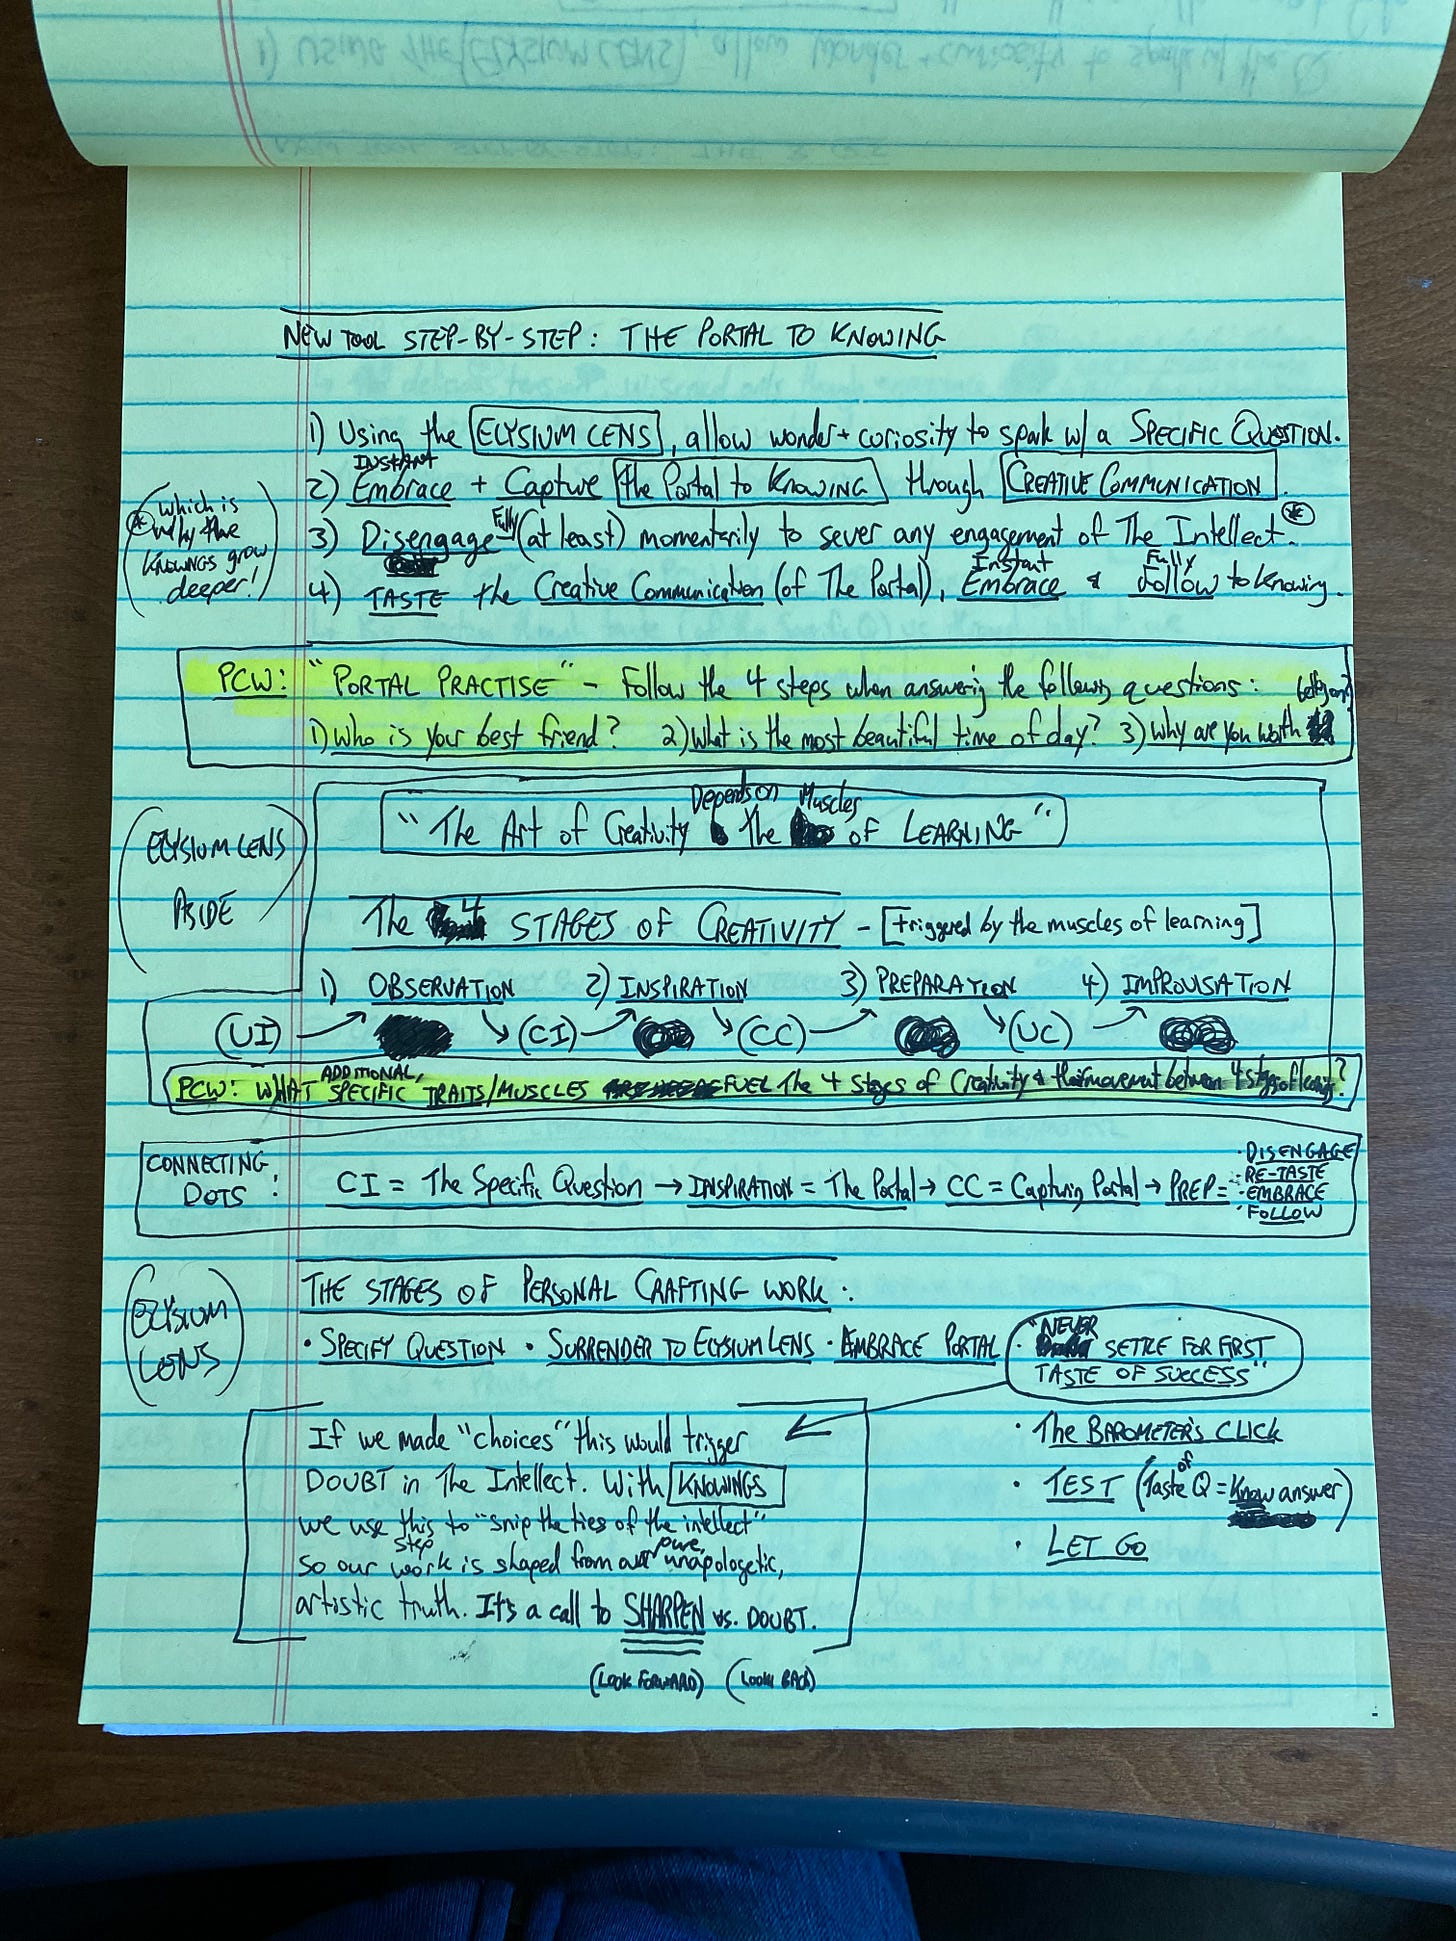 NEW TOOL STEP-BY-STEP: THE PORTAL TO KNOWING
1) Using the ELYSIUM LENS, allow wonder + curiosity to spark w/ a SPECIFIC QUESTION.
INSTANT
2) Embrace + Capture the Portal to KNOWING through CREATIVE COMMUNICATION.
Fully
3) Disengage (at least) momentarily to sever any engagement of The Intellect. *
(* which is
why the
KNOWINGS grow
deeper!)
Instant Fully
4) TASTE the Creative Communication (of The Portal), Embrace & Follow to knowing.
PCW: "PORTAL PRACTISE" - Follow the 4 steps when answering the following questions:
1) Who is your best friend? 2) What is the most beautiful time of day? 3) Why are you worth
Depends on Muscles
"The Art of Creativity The of LEARNING"
(ELYSIUM LENS
ASIDE)
The 4 STAGES OF CREATIVITY - [triggered by the muscles of learning]
1) OBSERVATION 2) INSPIRATION 3) PREPARATION 4) IMPROVISATION
(UI) → → (CI) → → (CC) → → (UC) →
ADDITIONAL,
PCW: WHAT SPECIFIC TRAITS/MUSCLES FUEL The 4 stages of Creativity & their movement between 4 stages of
CONNECTING
DOTS :
CI = The Specific Question → INSPIRATION = The Portal → CC = Capturing Portal → PREP =
· DISENGAGE
· RE-TASTE
· EMBRACE
· FOLLOW
(ELYSIUM
LENS)
THE STAGES OF PERSONAL CRAFTING WORK:
· SPECIFY QUESTION · SURRENDER TO ELYSIUM LENS · EMBRACE PORTAL
· "NEVER
SETTLE FOR FIRST
TASTE OF SUCCESS"
· The BAROMETER'S CLICK
of
· TEST (Taste Q = Know answer)
· LET GO
If we made "choices" this would trigger
DOUBT in The Intellect. With KNOWINGS
we use this to "snip the ties of the intellect"
step pure,
so our work is shaped from our unapologetic,
artistic truth. It's a call to SHARPEN vs. DOUBT.
(LOOK FORWARD) (LOOK BACK)